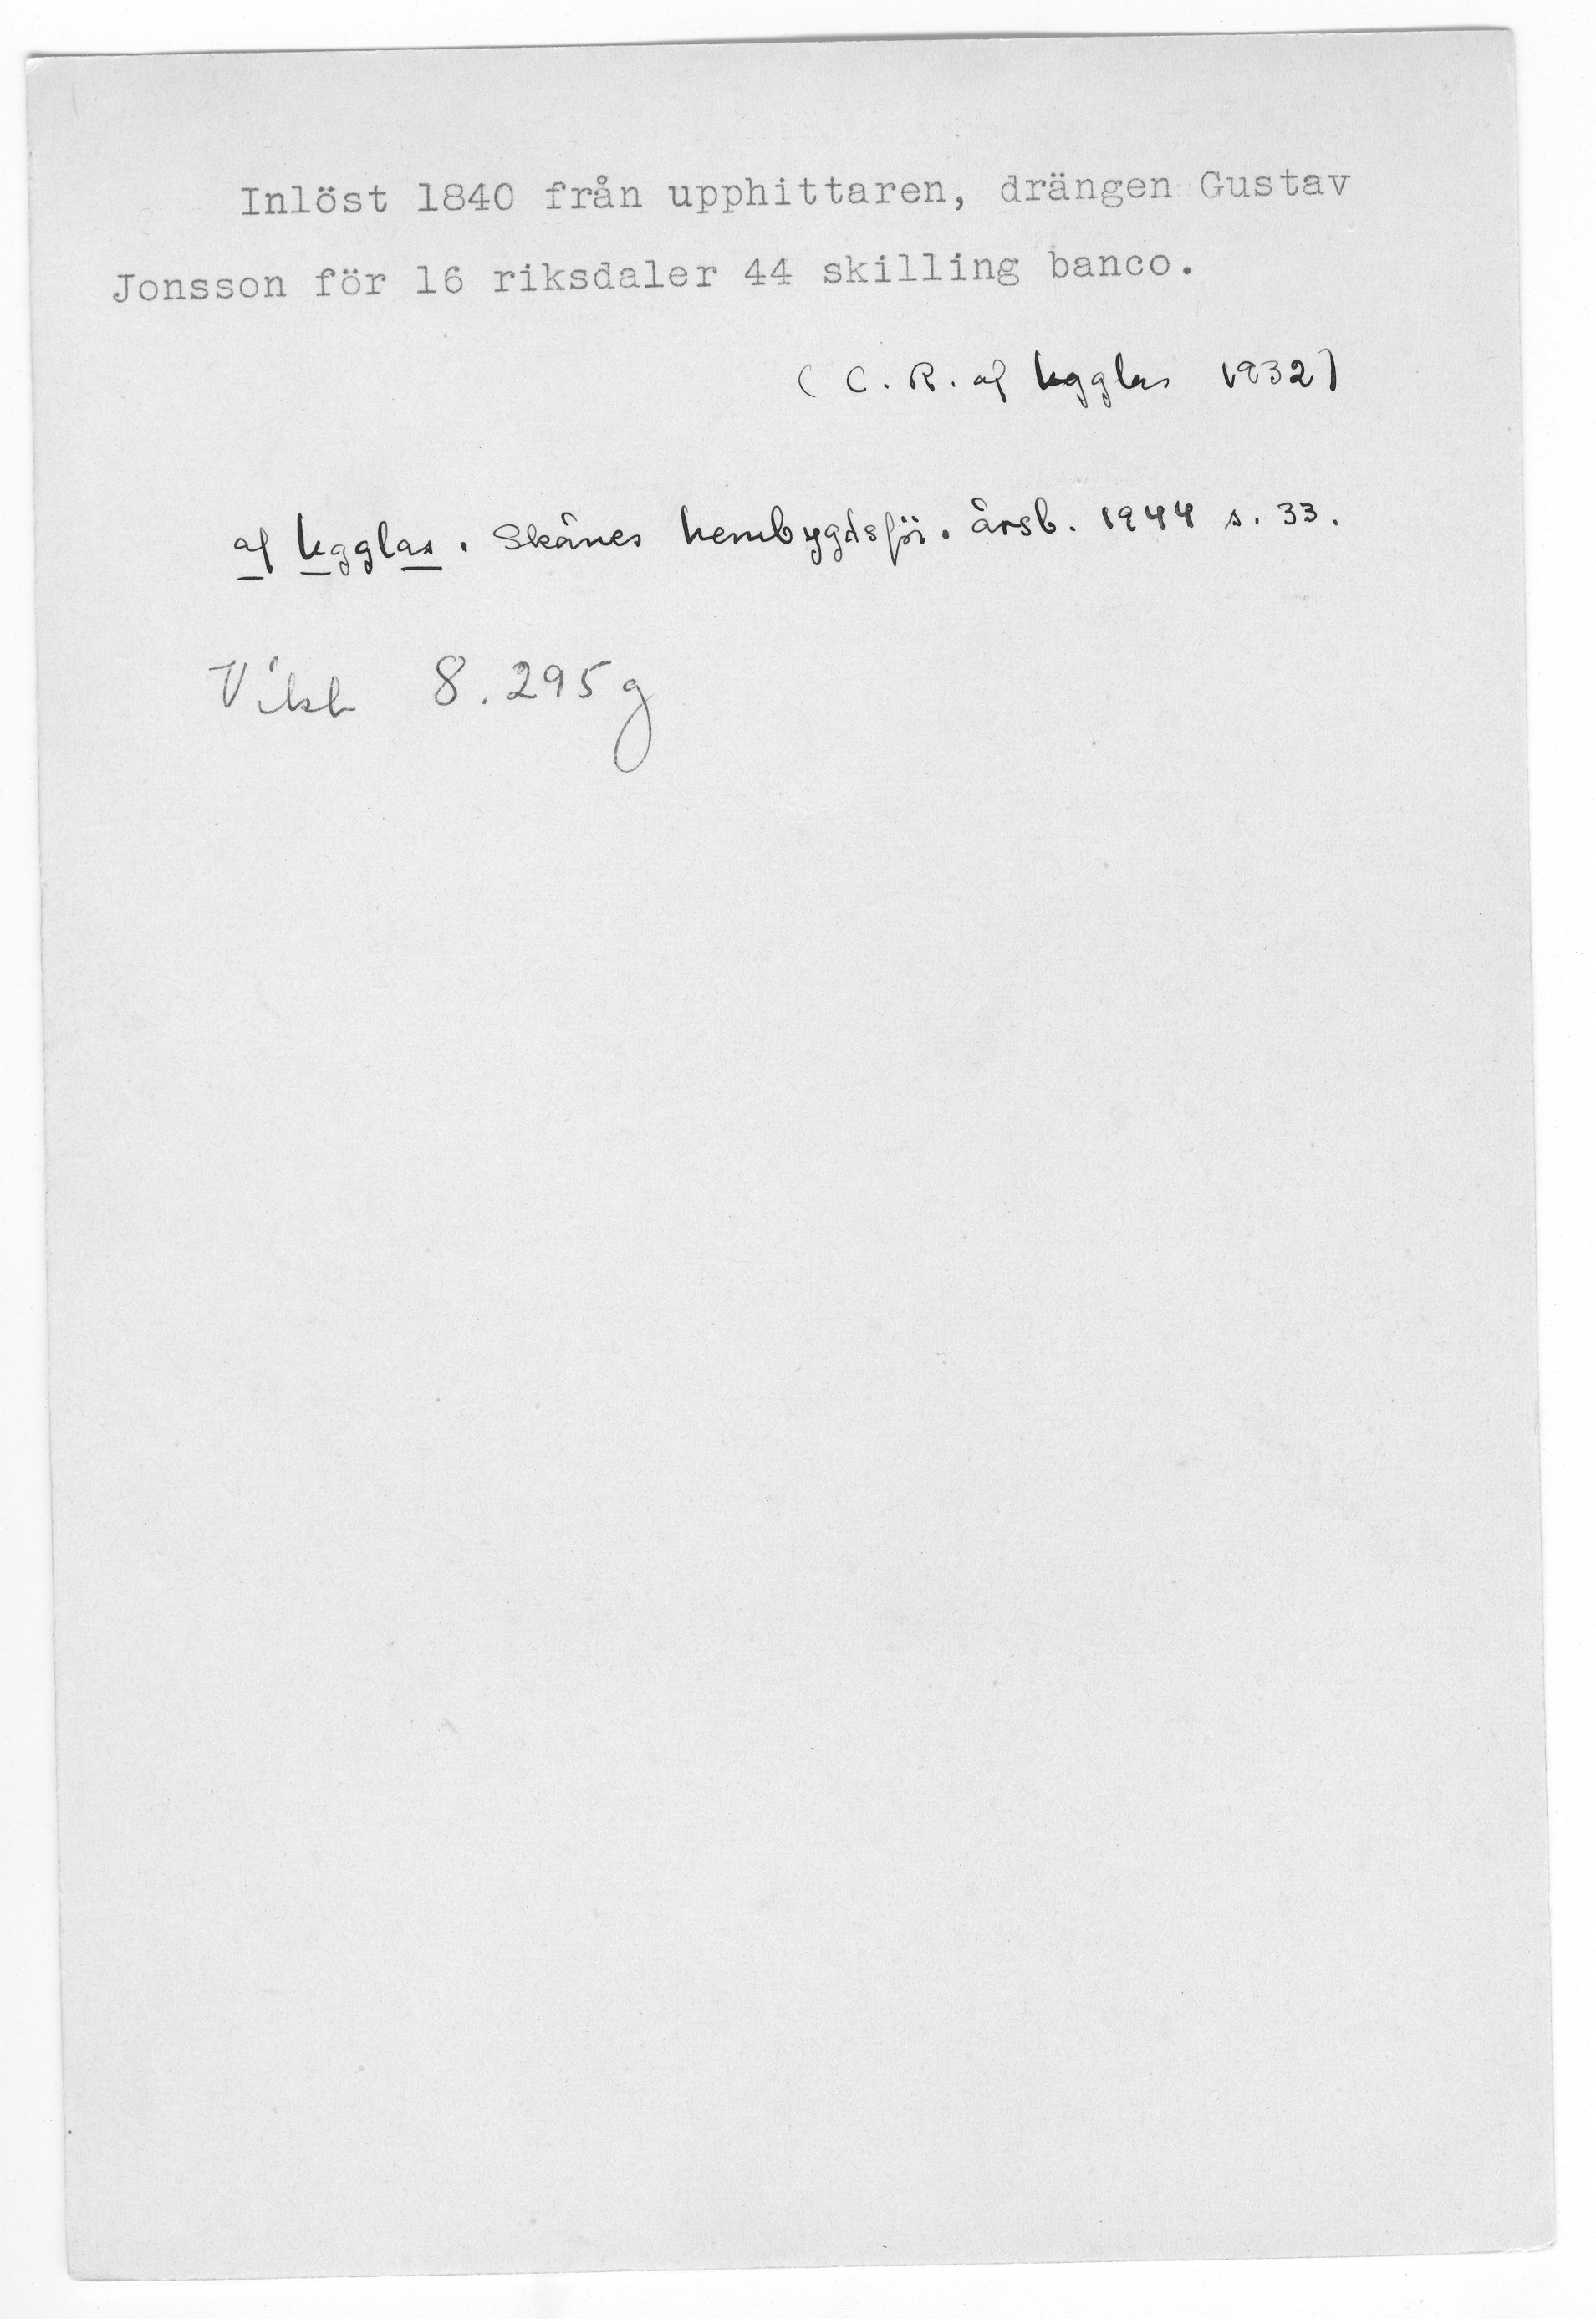 Inlöst 1840 från upphittaren, drängen Gustav
Jonsson för 16 riksdaler 44 skilling banco.
( C. R. af Ugglas 1932)
af Ugglas. Skånes hembygdsför. årsb. 1944 s. 33.
Vikt 8.295 g